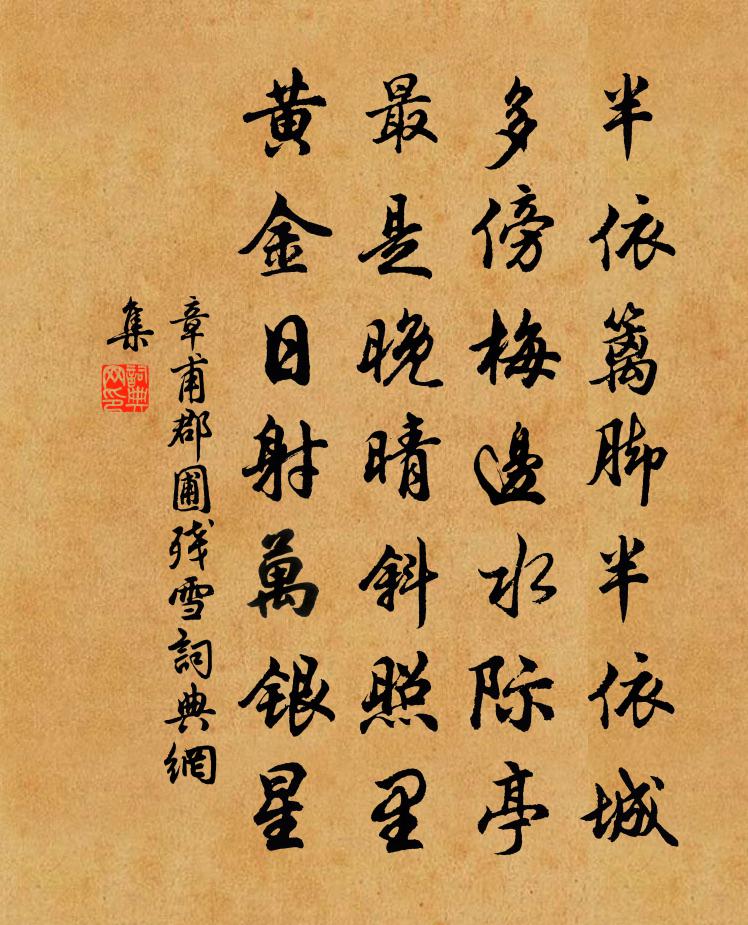 半依篱脚半依城
多傍梅邊水际亭
最是晚晴斜照里
黄金日射萬銀星
章甫郡圃残雪詞典網
集
詞典
网印